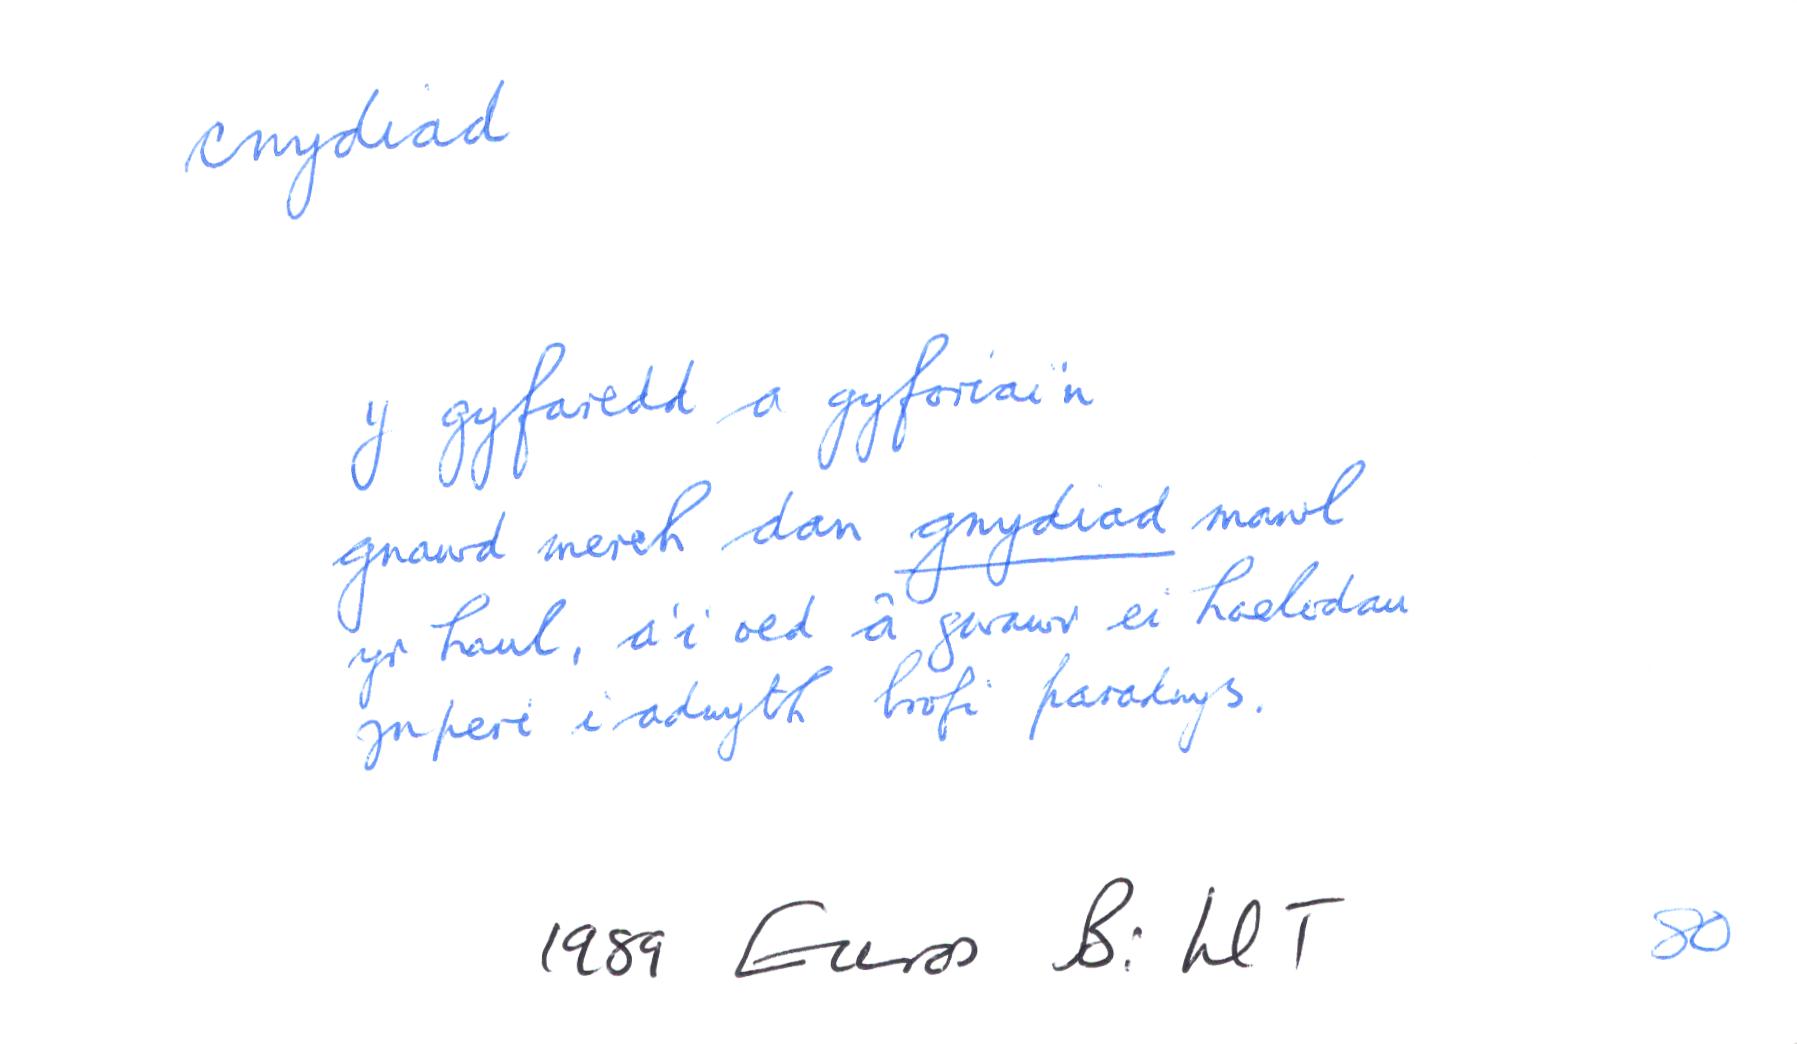 cnydiad
y gyfaredd a gyforiai'n
gnawd merch dan gnydiad mawl
yr haul, a'i oed â gwawr ei haelodau
yn peri i adwyth brofi paradwys.
1989 Euros B: LlT 80